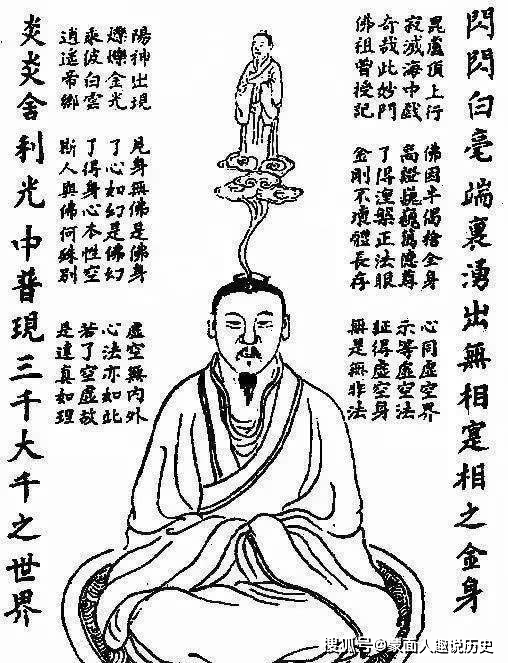 閃閃白毫端裏湧出無相寔相之金身
毘盧頂上行
寂滅海中戲
奇哉此妙門
佛祖曾授記
佛因半偈捨金身
高證巍巍萬德尊
了得涅槃正法眼
金剛不壞體長存
心同虛空界
示等虛空法
証得虛空身
無是無非法
陽神出現
爍爍金光
乘彼白雲
逍遙帝鄉
見身無佛是佛身
了心如幻是佛幻
了得身心本性空
斯人與佛何殊別
虛空無內外
心法亦如此
若了空虛故
是達真如理
炎炎舍利光中普現三千大千之世界
搜狐号@蒙面人趣说历史